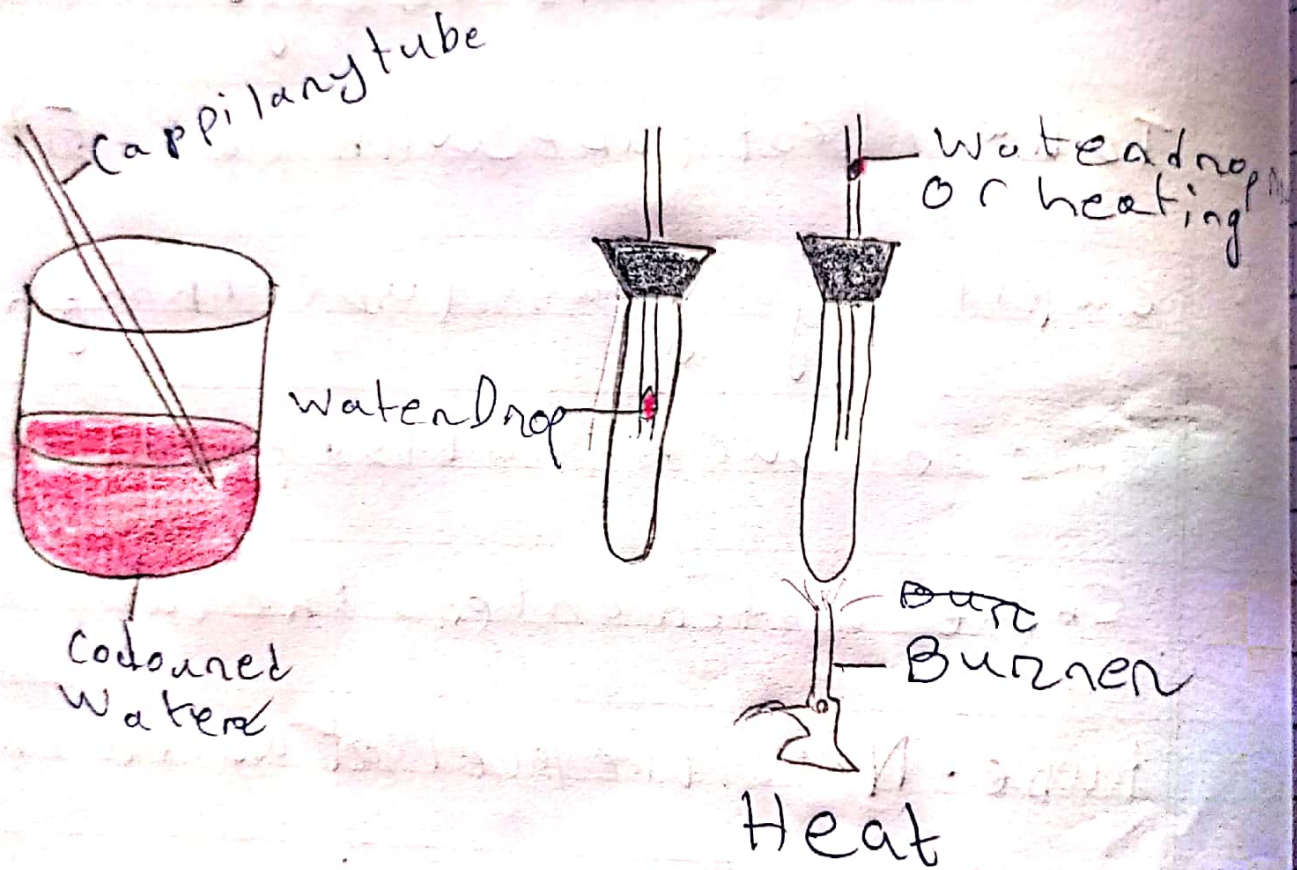 Cappilarytube
Waterdrop
or heating
WaterDrop
Coloured
Water
Bur
Burner
Heat